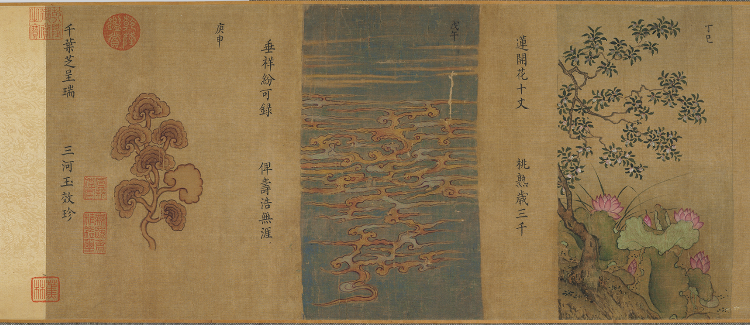 丁巳
蓮開花十丈
桃熟歲三千
戊午
垂祥紛可錄
俾壽浩無涯
庚申
千葉芝呈瑞
三河玉效珍